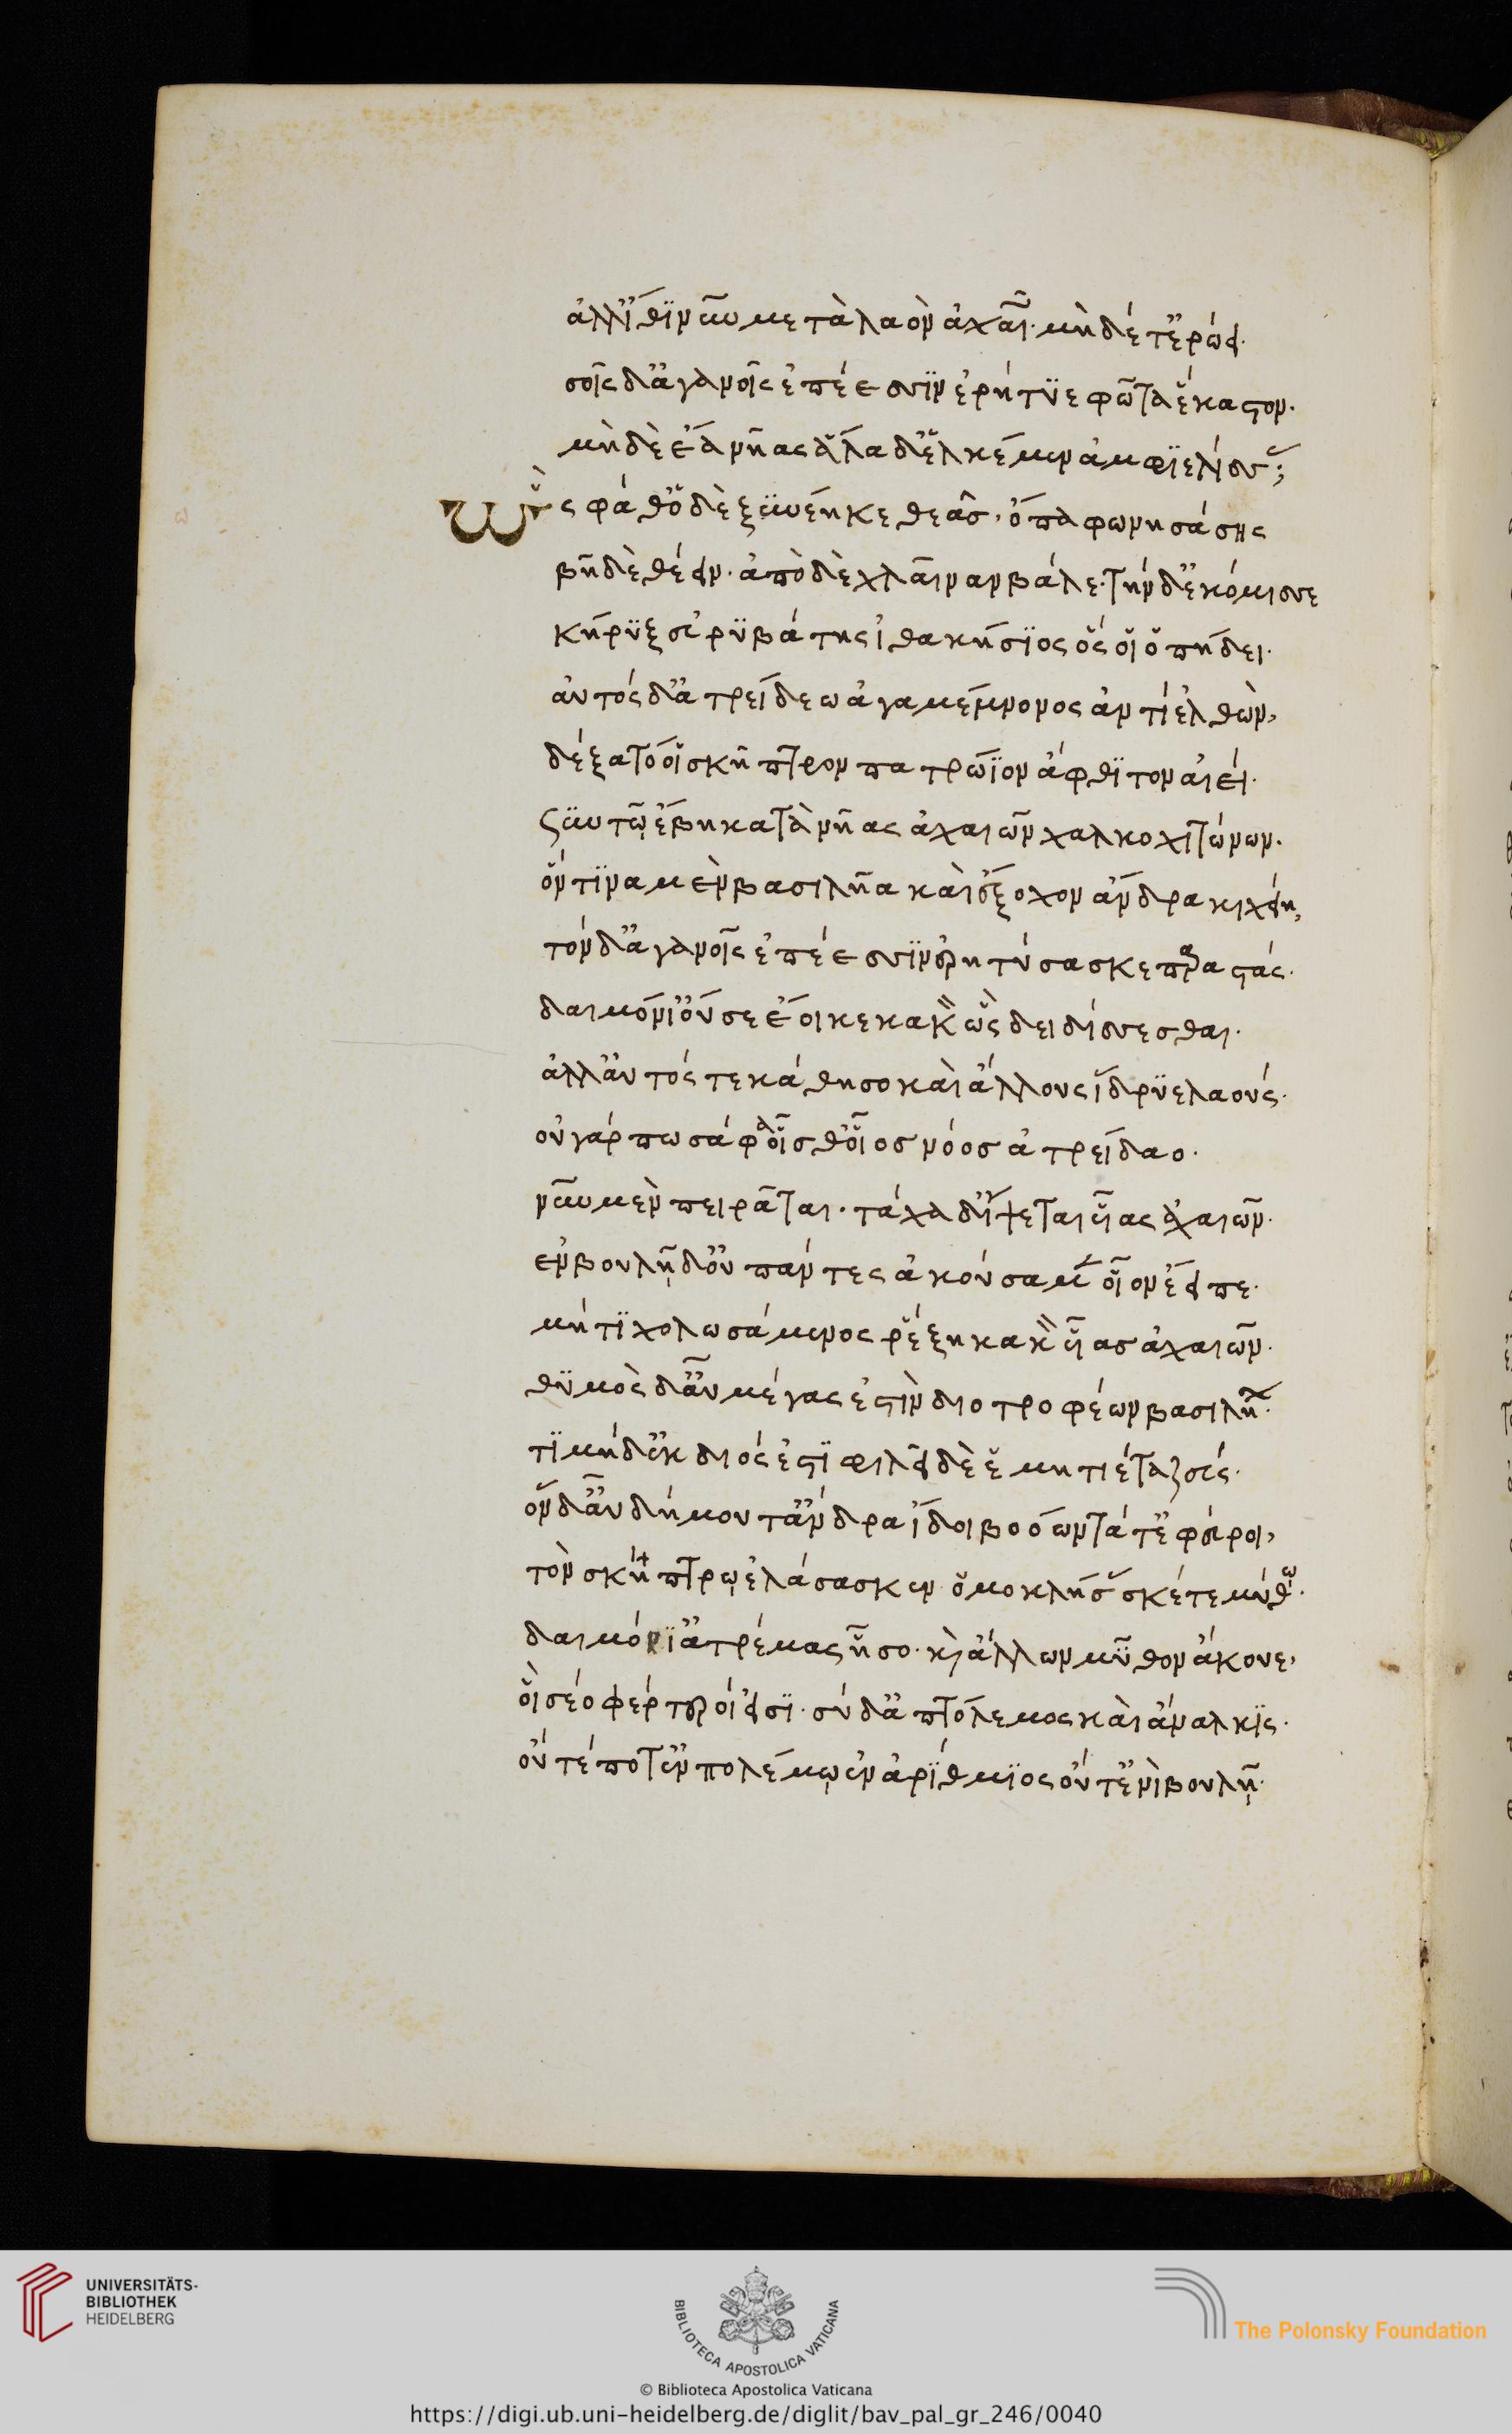 ἀλλ' ἴθι νῦν μετὰ λαὸν ἀχαιῶν· μὴ δέ τ' ἐρώει·
σοῖς δ' ἀγανοῖς ἐπέεσσιν ἐρήτυε φῶτα ἕκαστον·
μὴ δὲ ἔα νῆας ἅλα δ' ἑλκέμεν ἀμφιελίσσας;
Ὣς φάθ' ὁ δὲ ξυνέηκε θεᾶς, ὄπα φωνησάσης
βῆ δὲ θέειν· ἀπὸ δὲ χλαῖναν βάλε· τὴν δ' ἐκόμισσε
κήρυξ εὐρυβάτης ἰθακήσιος ὅς οἱ ὀπήδει·
αὐτὸς δ' ἀτρείδεω ἀγαμέμνονος ἀντί' ἐλθὼν,
δέξατό οἱ σκῆπτρον πατρώϊον ἄφθιτον αἰεί·
σὺν τῷ ἔβη κατὰ νῆας ἀχαιῶν χαλκοχιτώνων·
ὅν τινα μὲν βασιλῆα καὶ ἔξοχον ἄνδρα κιχείη,
τὸν δ' ἀγανοῖς ἐπέεσσιν ἐρητύσασκε παραστάς·
δαιμόνι' οὔ σε ἔοικε κακὸν ὣς δειδίσσεσθαι·
ἀλλ' αὐτός τε κάθησο καὶ ἄλλους ἵδρυε λαούς·
οὐ γάρ πω σάφα οἶσθ' οἷος νόος ἀτρείδαο·
νῦν μὲν πειρᾶται· τάχα δ' ἴψεται υἷας ἀχαιῶν·
ἐν βουλῇ δ' οὐ πάντες ἀκούσαμεν οἷον ἔειπε·
μή τι χολωσάμενος ῥέξη κακὸν υἷας ἀχαιῶν·
θυμὸς δ' αὖ μέγας ἐστὶν διοτροφέων βασιλήων·
τιμὴ δ' ἐκ διός ἐστι φιλεῖ δὲ ἑ μητίετα ζεύς·
ὃν δ' αὖ δήμου τ' ἄνδρα ἴδοι βοόωντά τ' ἐφεύροι,
τὸν σκήπτρῳ ἐλάσασκεν ὁμοκλήσασκέ τε μύθῳ·
δαιμόνι' ἀτρέμας ἧσο· καὶ ἄλλων μῦθον ἄκουε,
οἳ σέο φέρτεροί εἰσι· σὺ δ' ἀπτόλεμος καὶ ἄναλκις·
οὔτέ ποτ' ἐν πολέμῳ ἐναρίθμιος οὔτ' ἐνὶ βουλῇ·
UNIVERSITÄTS-
BIBLIOTHEK
HEIDELBERG
BIBLIOTECA APOSTOLICA VATICANA
© Biblioteca Apostolica Vaticana
The Polonsky Foundation
https://digi.ub.uni-heidelberg.de/diglit/bav_pal_gr_246/0040